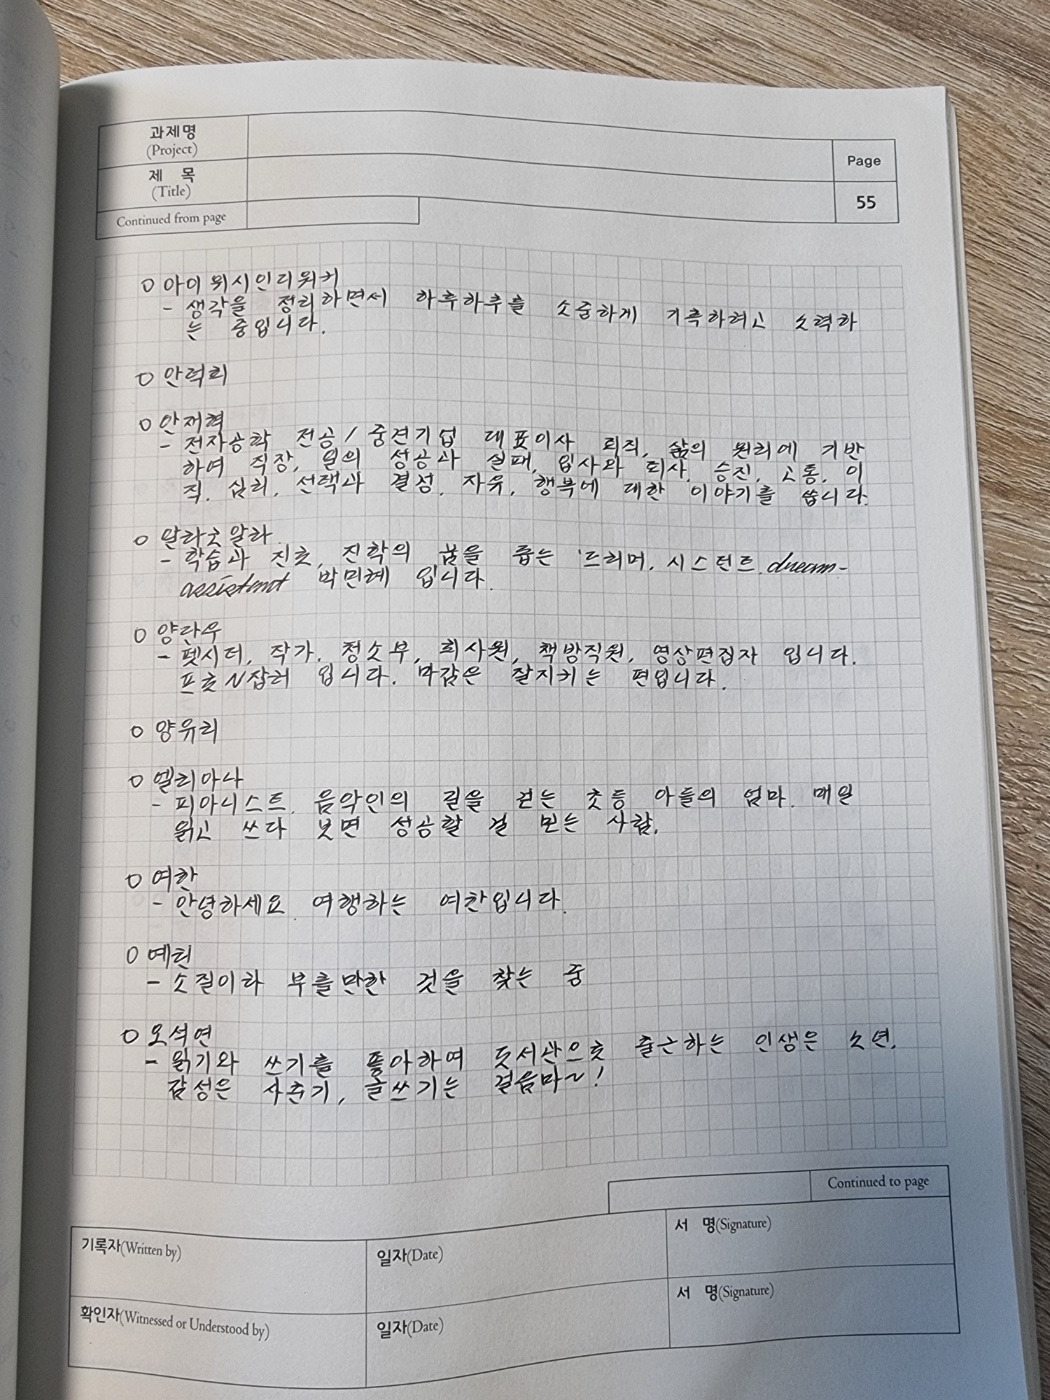 과제명
(Project)
제 목
(Title)
Continued from page
Page
55
○ 아이위시인더워커
- 생각을 정리하면서 하루하루를 소중하게 기록하려고 노력하
는 중입니다.
○ 안덕희
○ 안재혁
- 전자공학 전공/중견기업 대표이사 퇴직, 삶의 원리에 기반
하여 직장, 일의 성공과 실패, 입사와 퇴사, 승진, 고통, 이
직, 심리, 선택과 결정, 자유, 행복에 대한 이야기를 씁니다.
○ 알라굿알라
- 학습과 진로, 진학의 꿈을 돕는 드리머, 시스턴트 dream-
assistant 박민혜 입니다.
○ 양단우
- 펫시터, 작가, 청소부, 회사원, 책방직원, 영상편집자 입니다.
프로N잡러 입니다. 마감은 잘지키는 편입니다.
○ 양유리
○ 엘리아나
- 피아니스트. 음악인의 길을 걷는 초등 아들의 엄마. 매일
읽고 쓰다 보면 성공할 걸 믿는 사람.
○ 여찬
- 안녕하세요. 여행하는 여찬입니다.
○ 예린
- 소질이라 부를만한 것을 찾는 중
○ 오석연
- 읽기와 쓰기를 좋아하여 도서관으로 출근하는 인생은 소년,
감성은 사춘기, 글쓰기는 걸음마~!
Continued to page
기록자(Written by)
일자(Date)
서 명(Signature)
확인자(Witnessed or Understood by)
일자(Date)
서 명(Signature)